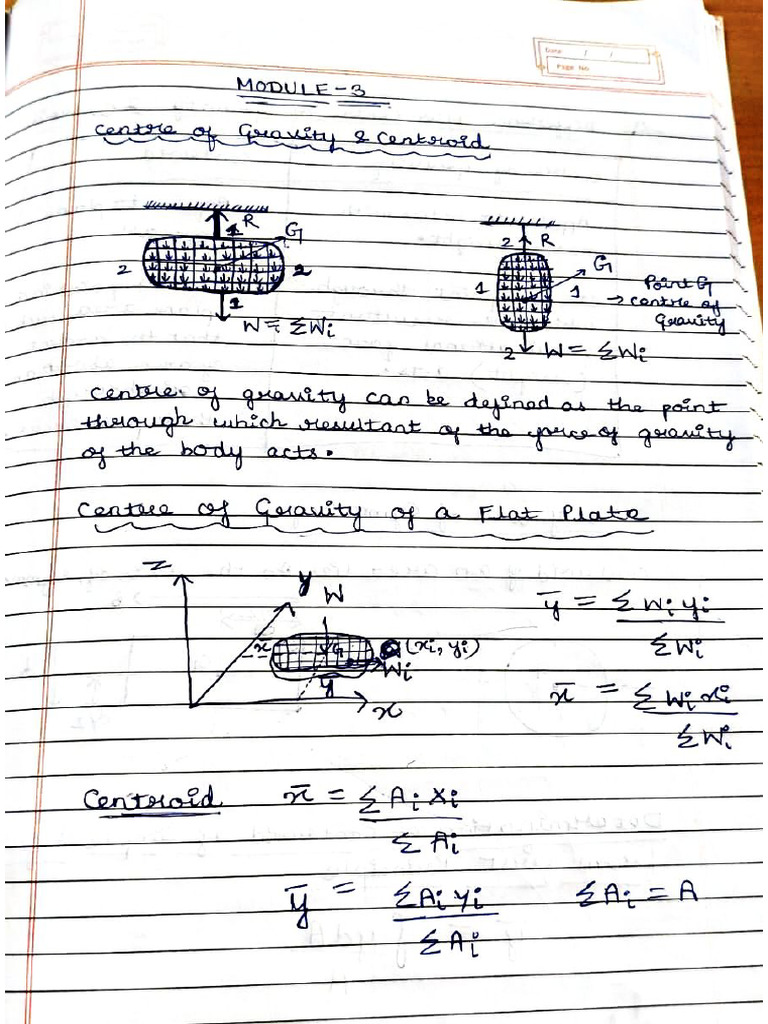 Date / /
Page No
MODULE-3
Centre of Gravity & Centroid
R
1
G
2
2
1
W = ΣWi
2 R
G
1
1
2
W = ΣWi
Point G
→ Centre of
Gravity
Centre of gravity can be defined as the point
through which resultant of the force of gravity
of the body acts.
Centre of Gravity of a Flat Plate
z
y
W
x̄
G
(xi, yi)
Wi
ȳ
x
ȳ = ΣWi yi
ΣWi
x̄ = ΣWi xi
ΣWi
Centroid x̄ = ΣAi Xi
ΣAi
ȳ = ΣAi yi ΣAi = A
ΣAi